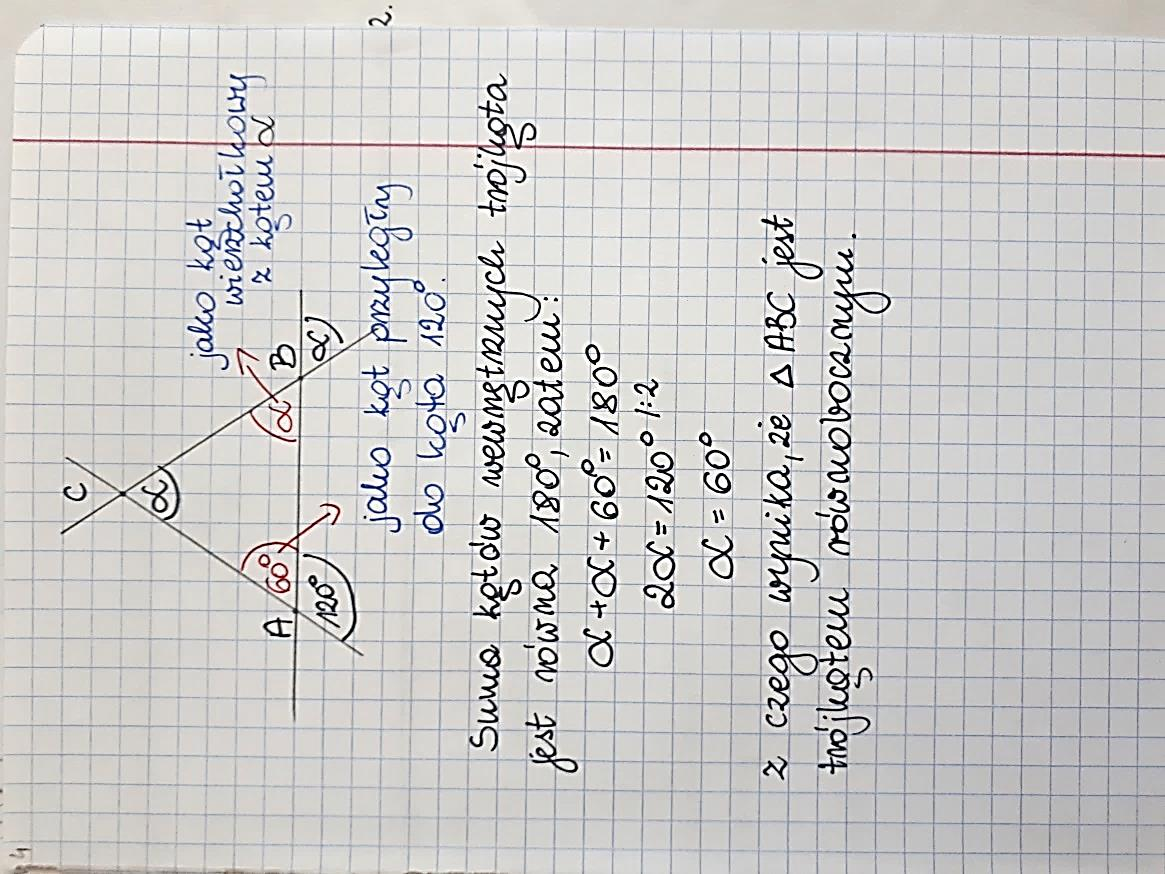 2.
C
α
jako kąt
wierzchołkowy
z kątem α
A
60°
α
B
120°
α
jako kąt przyległy
do kąta 120°.
Suma kątów wewnętrznych trójkąta
jest równa 180°, zatem:
α+α+60°=180°
2α=120° |:2
α=60°
z czego wynika, że △ABC jest
trójkątem równobocznym.